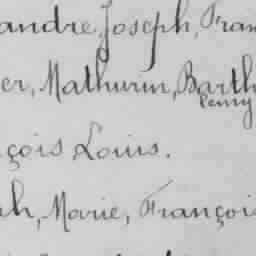 andre, Joseph, Fran
er, Mathurin, Barth
lemy
çois Louis.
ph, Marie, Françoi